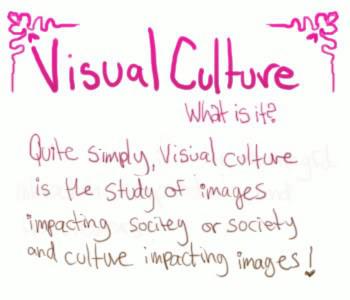 Visual Culture
What is it?
Quite simply, Visual culture
is the study of images
impacting socitey or society
and culture impacting images!